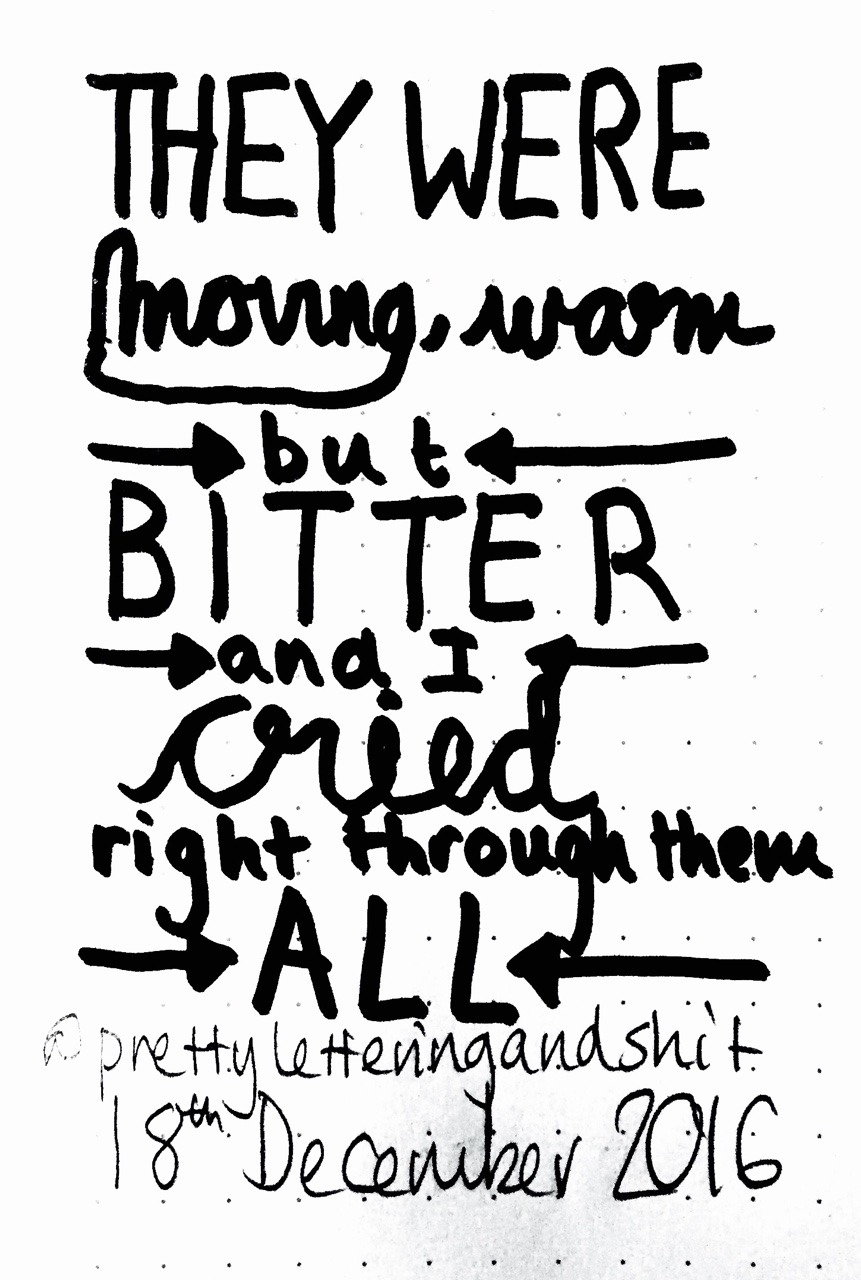 THEY WERE
moving, warm
but
BITTER
and I
cried
right through them
ALL
@prettyletteringandshit
18th December 2016